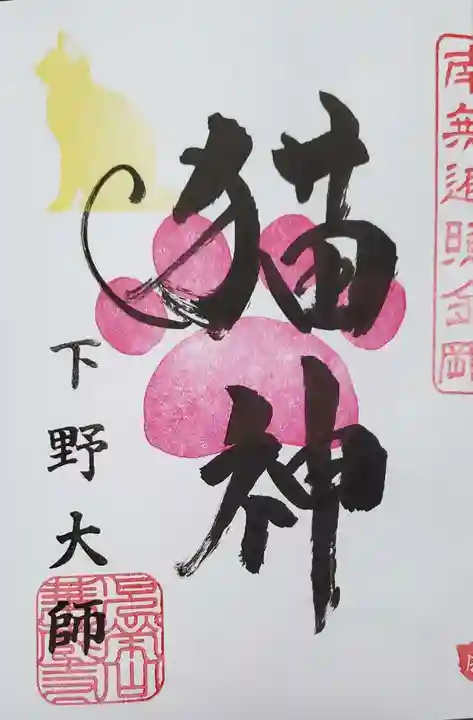 南無遍照金剛
猫神
下野大師